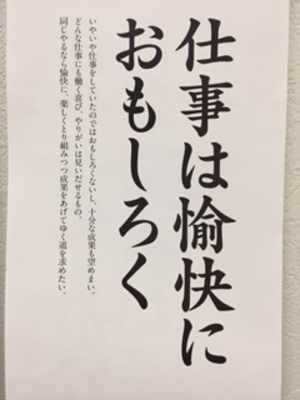 仕事は愉快に
おもしろく
いやいや仕事をしていたのではおもしろくないし、十分な成果も望めまい。
どんな仕事にも働く喜び、やりがいは見いだせるもの。
同じやるなら愉快に、楽しくとり組みつつ成果をあげてゆく道を求めたい。